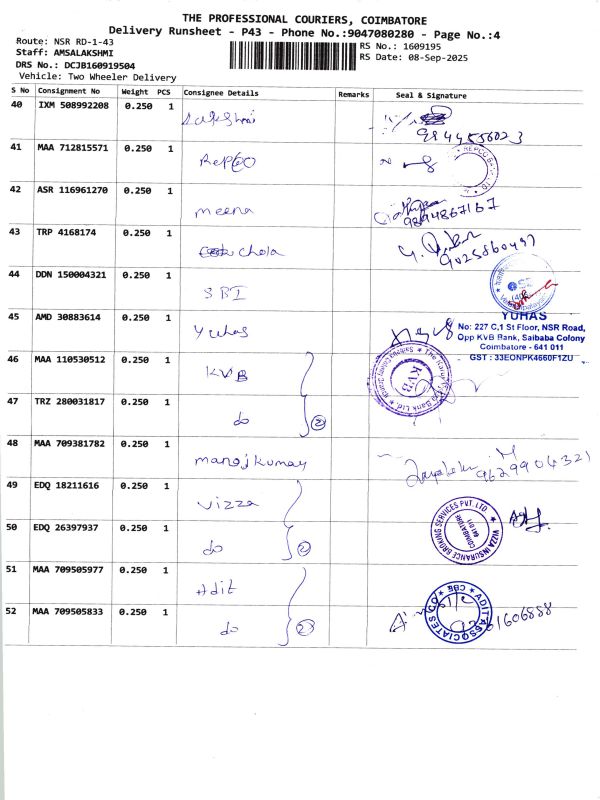 THE PROFESSIONAL COURIERS, COIMBATORE
Delivery Runsheet - P43 - Phone No.:9047080280 - Page No.:4
Route: NSR RD-1-43
Staff: AMSALAKSHMI
DRS No.: DCJB160919504
Vehicle: Two Wheeler Delivery
RS No.: 1609195
RS Date: 08-Sep-2025
S No Consignment No Weight PCS Consignee Details Remarks Seal & Signature
40 IXM 508992208 0.250 1
41 MAA 712815571 0.250 1 Repco
REPCO BANK LTD
42 ASR 116961270 0.250 1 meena
9894867167
43 TRP 4168174 0.250 1 chola
44 DDN 150004321 0.250 1 SBI
45 AMD 30883614 0.250 1 Yuhas
YUHAS
No: 227 C,1 St Floor, NSR Road,
Opp KVB Bank, Saibaba Colony
Coimbatore - 641 011
GST : 33EONPK4660F1ZU
46 MAA 110530512 0.250 1 KVB
KVB
47 TRZ 280031817 0.250 1 do 2
48 MAA 709381782 0.250 1 manojkumar
9629904321
49 EDQ 18211616 0.250 1 vizza
VIZZA INSURANCE BROKING SERVICES PVT. LTD.
COIMBATORE
641 011
50 EDQ 26397937 0.250 1 do 2
51 MAA 709505977 0.250 1 Adit
ADIT ASSOCIATES CO
CBE
52 MAA 709505833 0.250 1 do 2